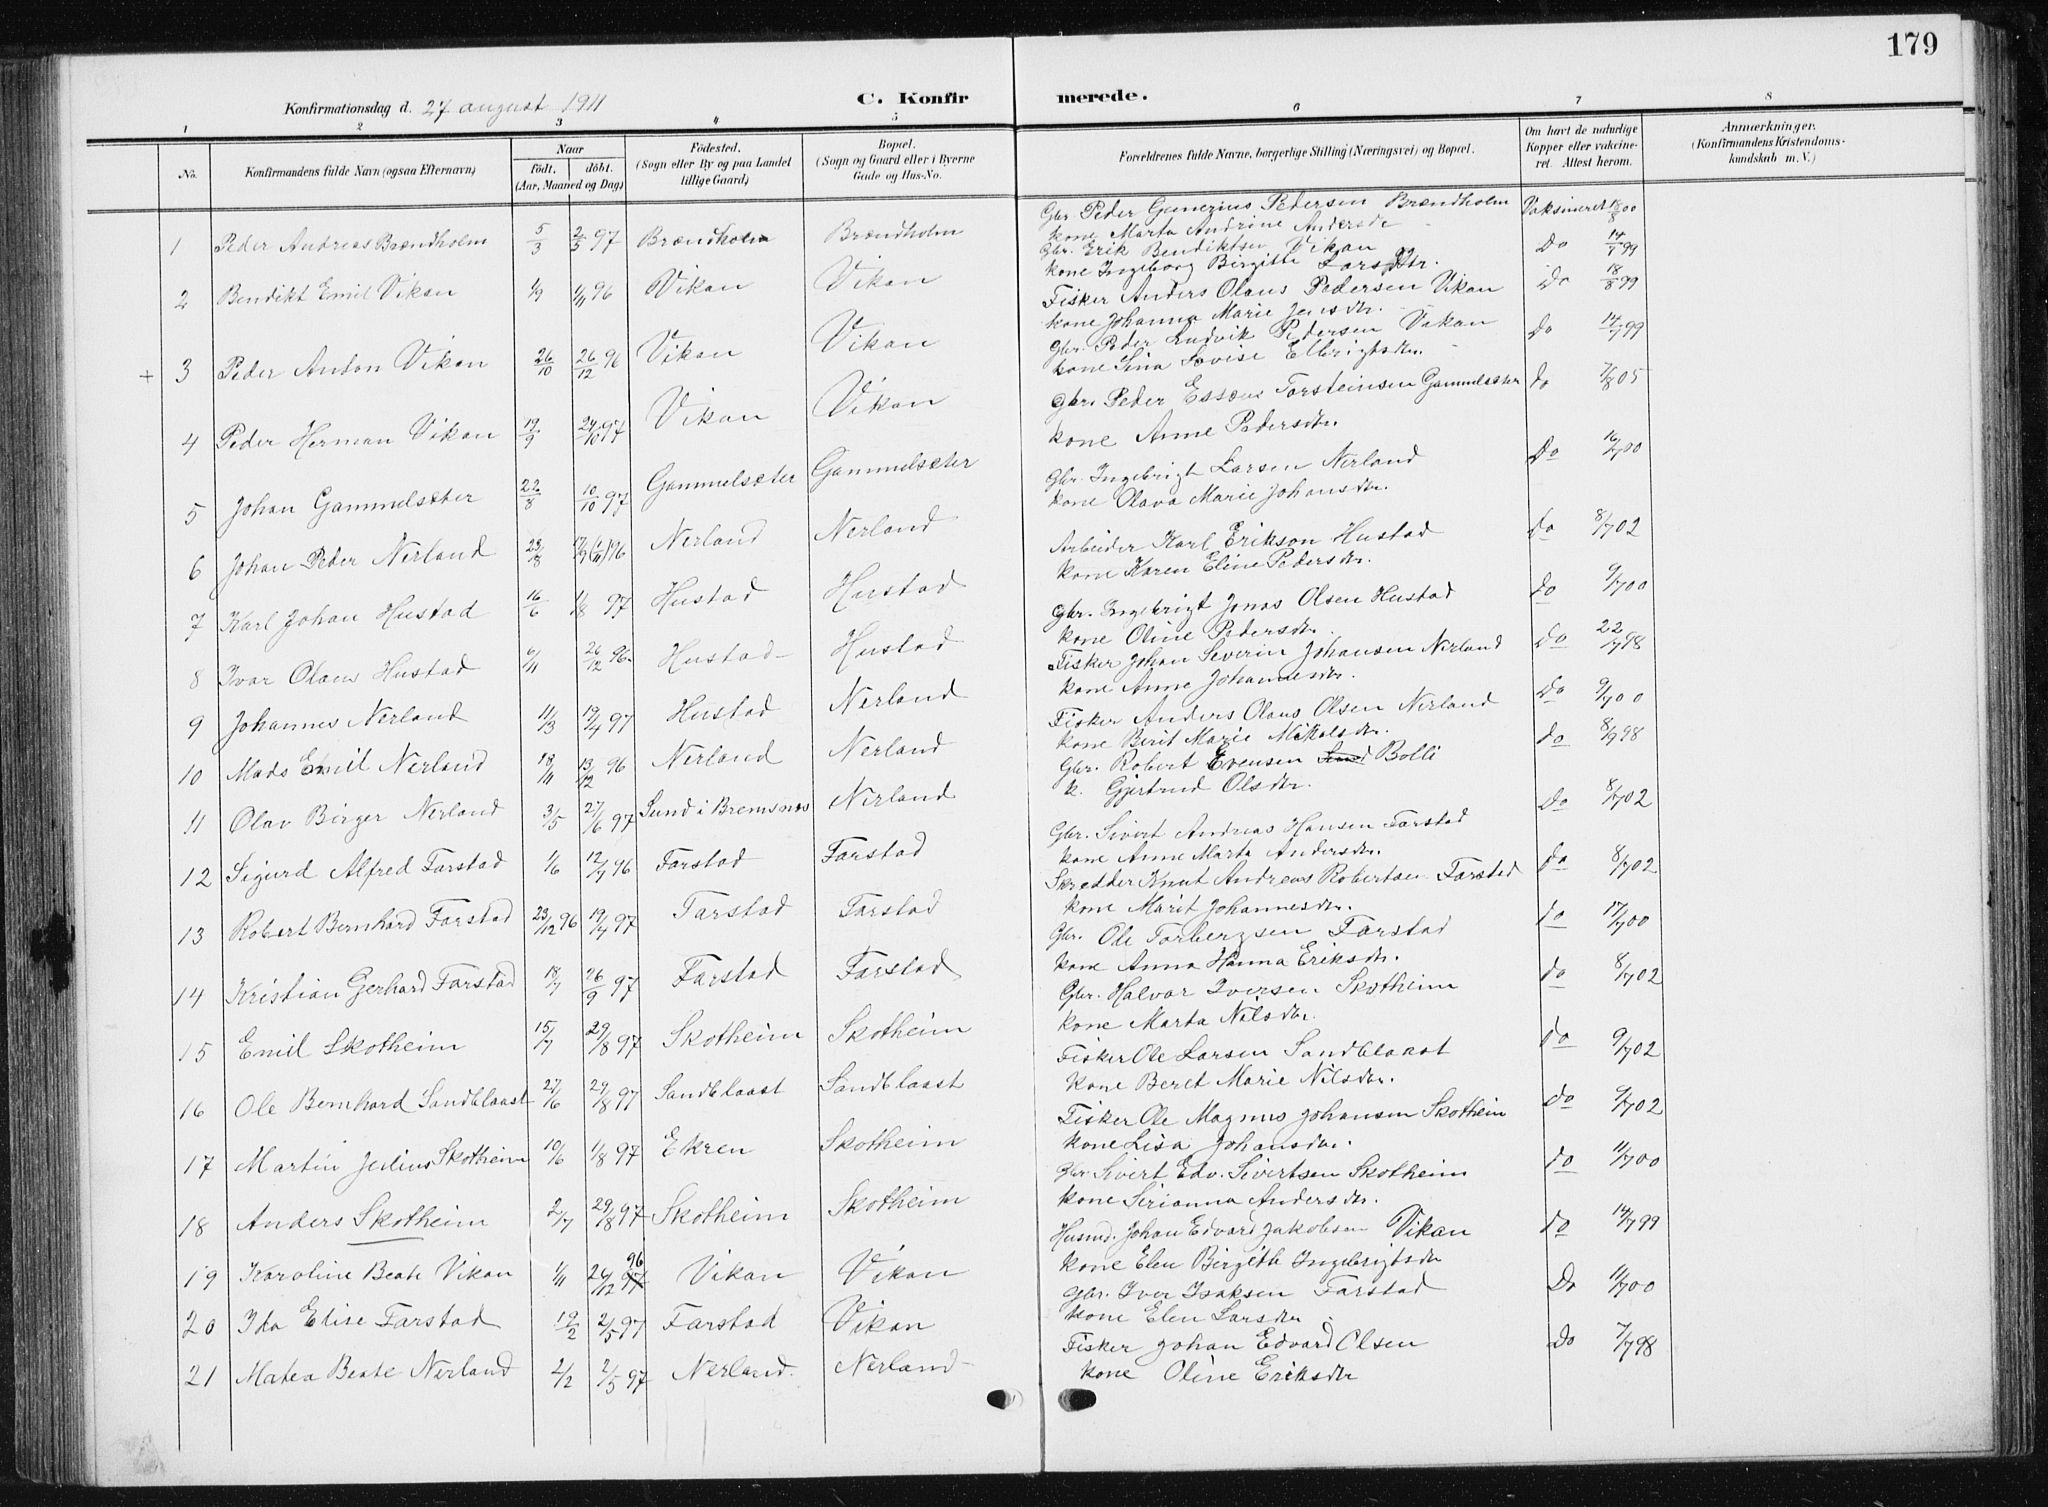 179
Konfirmationsdag d. 27 august 1911
C. Konfirmerede.
1 2 3 4 5 6 7 8
No. Konfirmandens fulde Navn (ogsaa Efternavn) Naar födt. döbt. (Aar, Maaned og Dag) Födested. (Sogn eller By og paa Landet tillige Gaard) Bopæl. (Sogn og Gaard eller i Byerne Gade og Hus-No. Forældrenes fulde Navne, borgerlige Stilling (Næringsvei) og Bopæl. Om havt de naturlige Kopper eller vakcineret. Attest herom. Anmærkninger. (Konfirmandens Kristendomskundskab m. V.)
1 Peder Andreas Brændholm 5/3 2/5 97 Brændholm Brændholm Gbr. Peder Gunerius Pedersen Brændholm Vaksineret
kone Marta Andrine Andersdr
2 Bendikt Emil Vikan 1/9 1/11 96 Vikan Vikan Gbr. Erik Bendiktsen Vikan Do
kone Ingeborg Birgitte Larsdtr.
+ 3 Peder Anton Vikan 26/10 26/12 96 Vikan Vikan Fisker Anders Olaus Pedersen Vikan Do 18/8 99
kone Johanna Marie Jensdr.
4 Peder Herman Vikan 19/9 24/10 97 Vikan Vikan Gbr. Peder Ludvik Pedersen Vikan Do 14/7 99
kone Sina Lovise Ellingsdr.
5 Johan Gammelsæter 22/8 10/10 97 Gammelsæter Gammelsæter Gbr. Peder Essæus Torsteinsen Gammelsæter do 7/8 05
kone Anne Pedersdr.
6 Johan Peder Nerland 23/8 Nerland Nerland Gbr. Ingebrigt Larsen Nerland Do 16/7 00
kone Olava Marie Johansdr.
7 Karl Johan Hustad 16/6 1/8 97 Hustad Hustad Arbeider Karl Erikson Hustad do 8/7 02
kone Karen Eline Pedersdr.
8 Ivar Olaus Hustad 6/11 26/12 96 Hustad Hustad Gbr. Ingebrigt Jonas Olsen Hustad do 9/7 00
kone Oline Pedersdr.
9 Johannes Nerland 11/3 19/4 97 Hustad Nerland Fisker Johan Severin Johansen Nerland do 22/7 98
kone Anne Johannesdr.
10 Mads Emil Nerland 18/11 13/12 96 Nerland Nerland Fisker Anders Olaus Olsen Nerland Do 9/7 00
kone Berit Marie Mikalsdr.
11 Olav Birger Nerland 3/5 27/6 97 Sund i Bremsnes Nerland Gbr. Robert Evensen Sund Bolli do 8/9 98
k. Gjertrud Olsdr.
12 Sigurd Alfred Farstad 1/6 12/7 96 Farstad Farstad Gbr. Sivert Andreas Hansen Farstad Do 8/7 02
kone Anne Marta Andersdr.
13 Robert Bernhard Farstad 23/12 96 19/4 97 Farstad Farstad Skredder Knut Andreas Robertsen Farstad do 8/7 02
kone Marit Johannesdr.
14 Kristian Gerhard Farstad 18/7 26/9 97 Farstad Farstad Gbr. Ole Torbergsen Farstad do 17/7 00
kone Anna Hanna Eriksdr.
15 Emil Skotheim 15/7 29/8 97 Skotheim Skotheim Gbr. Halvor Iversen Skotheim do 8/7 02
kone Marta Nilsdr.
16 Ole Bernhard Sandblaast 27/6 29/8 97 Sandblaast Sandblaast Fisker Ole Larsen Sandblaast do 9/7 02
kone Beret Marie Nilsdr.
17 Martin Julius Skotheim 10/6 1/8 97 Ekren Skotheim Fisker Ole Magnus Johansen Skotheim do 9/7 02
kone Lisa Johansdr.
18 Anders Skotheim 2/7 29/8 97 Skotheim Skotheim Gbr Sivert Edv. Sivertsen Skotheim do 11/7 00
kone Serianna Andersdr.
19 Karoline Beate Vikan 1/11 26/12 96 Vikan Vikan Husmd. Johan Edvard Jakobsen Vikan do 14/7 99
kone Elen Birgitte Ingebrigtsdr
20 Ida Elise Farstad 19/2 2/5 97 Farstad Vikan Gbr. Iver Isaksen Farstad Do 11/7 00
kone Elen Larsdr
21 Matea Beate Nerland 2/2 2/5 97 Nerland. Nerland Fisker Johan Edvard Olsen Do 7/7 98
kone Oline Eriksdr